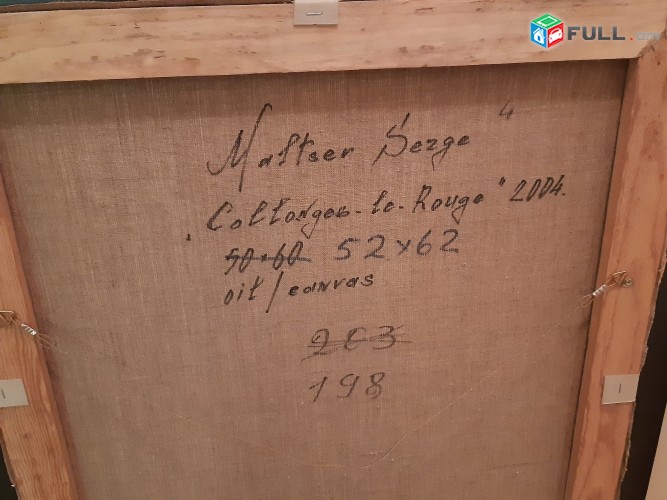 FULL.am
4
Maltser Serge
"Collonges-la-Rouge" 2004.
50×60 52×62
oil/canvas
203
198